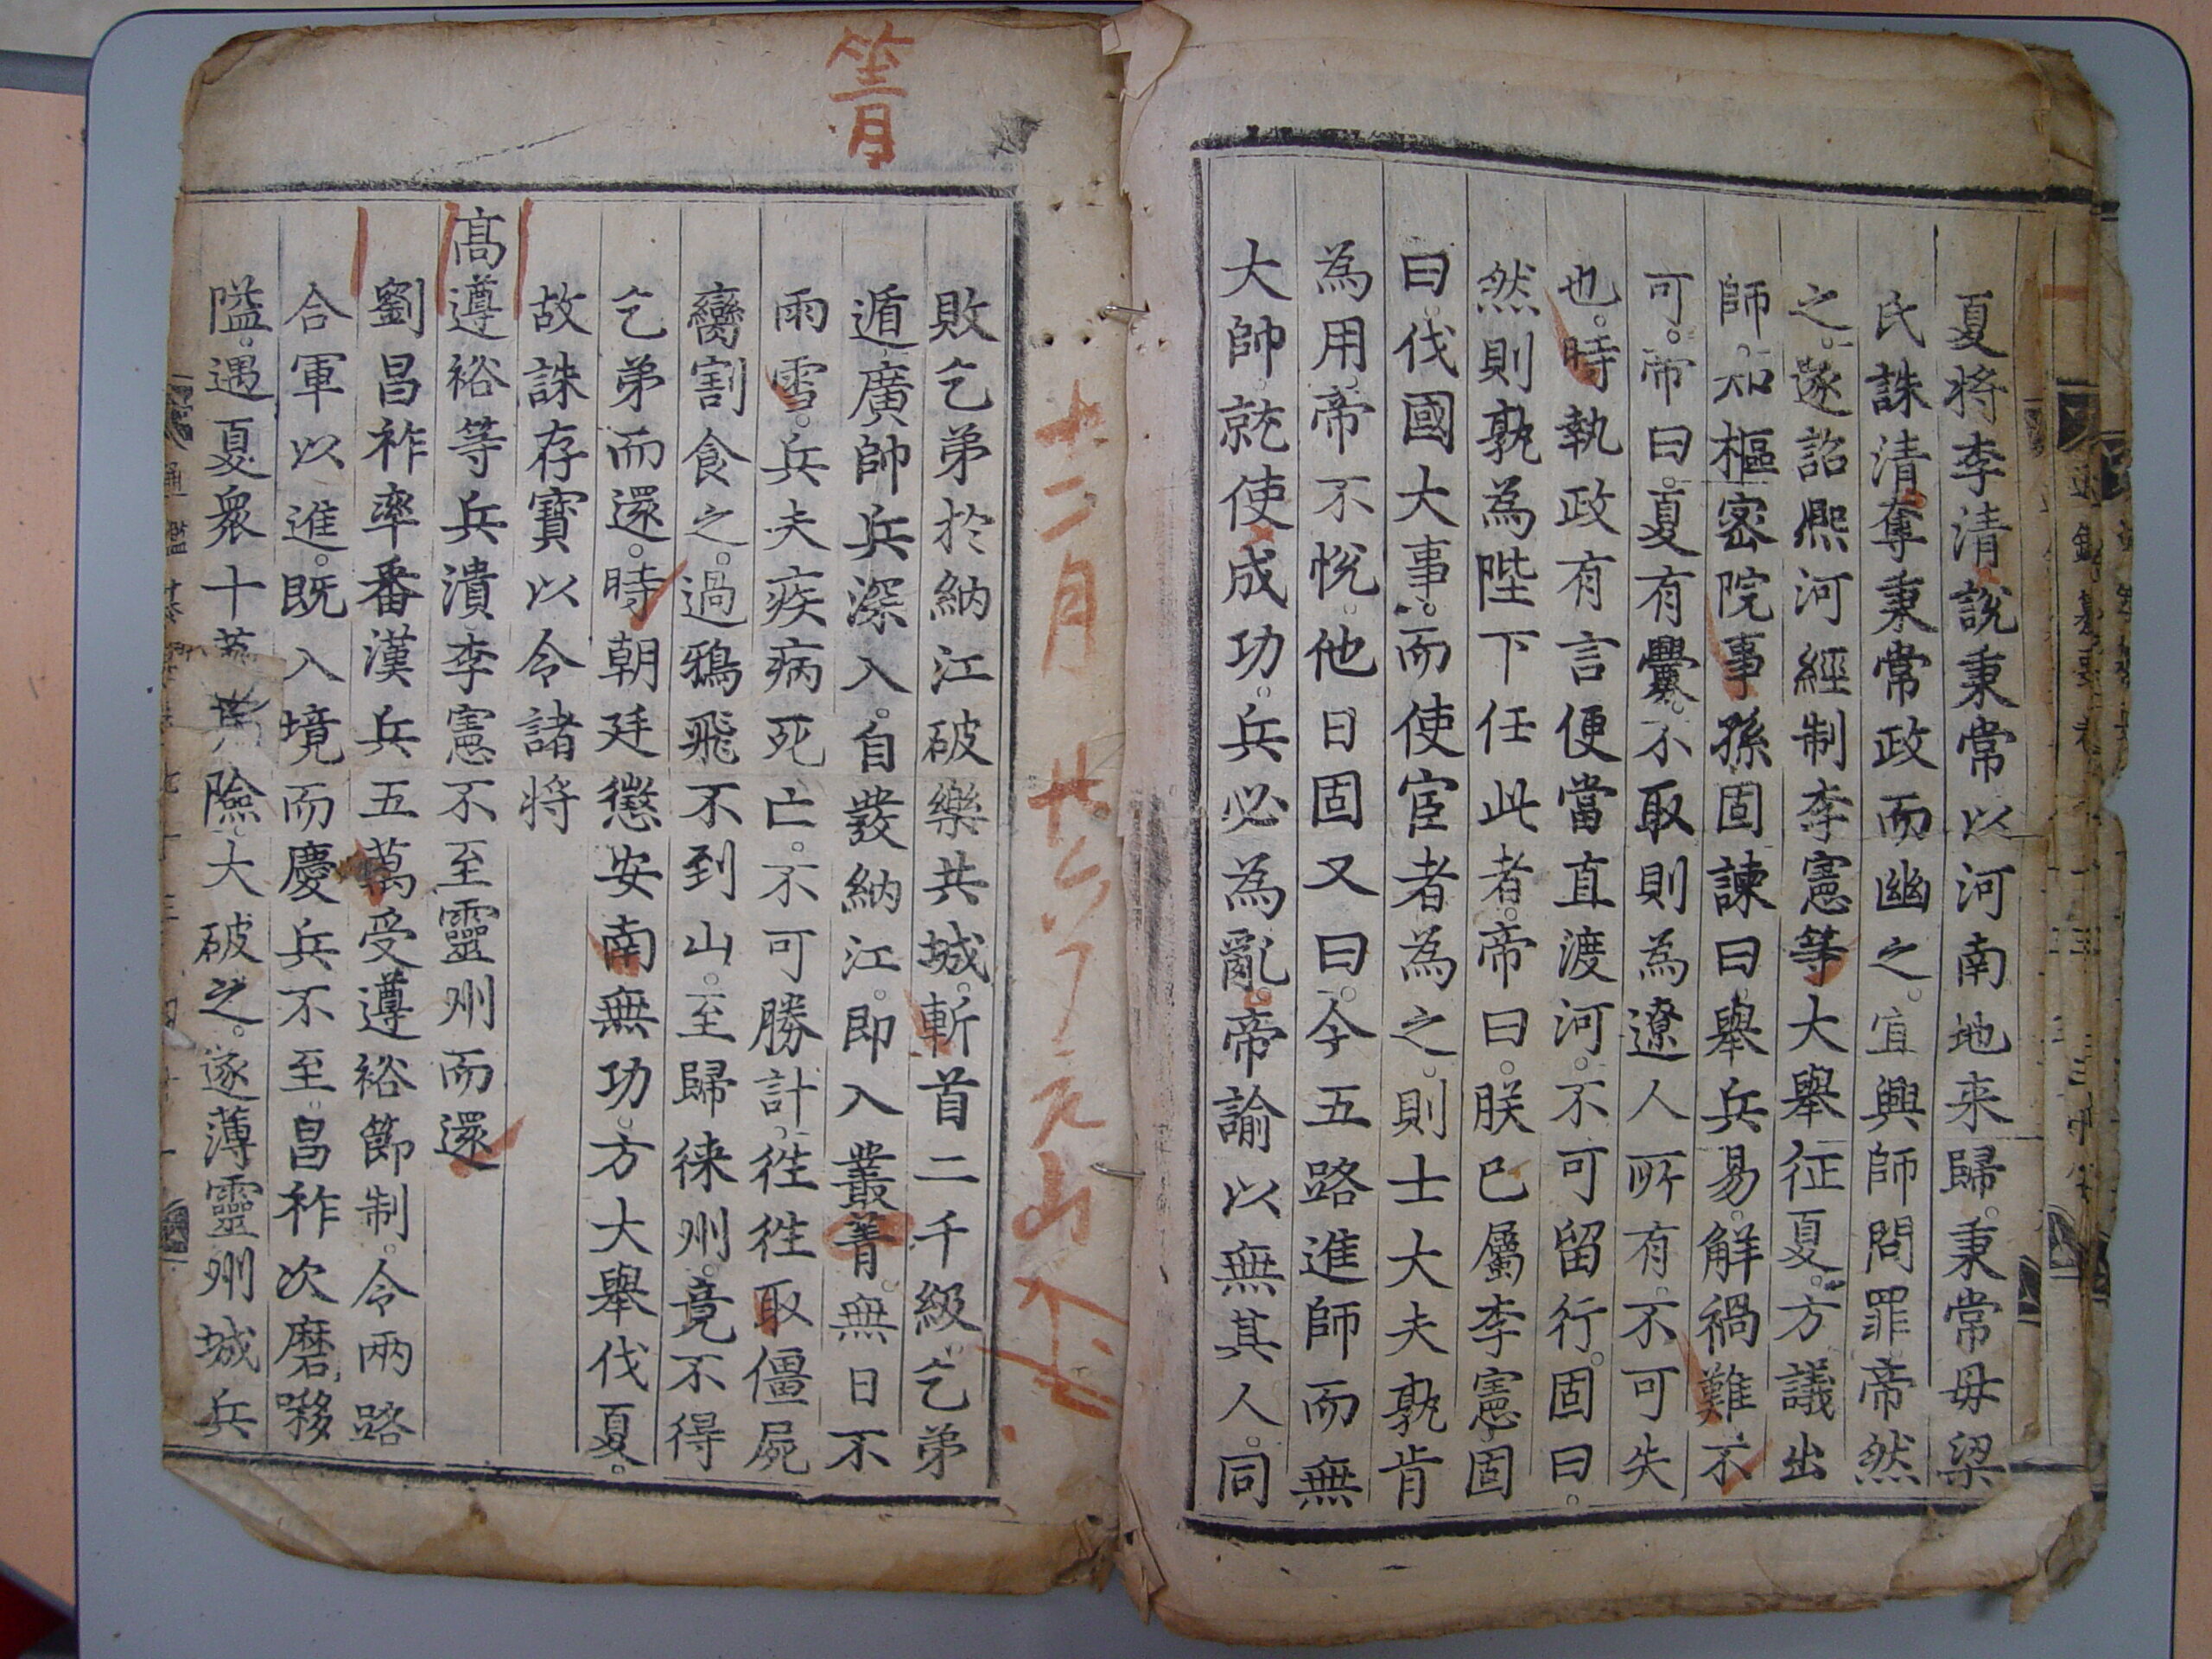 夏將李清說秉常以河南地来歸。秉常母梁
氏誅清奪秉常政而幽之。宜興師問罪帝然
之。遂詔熙河經制李憲等大舉征夏。方議出
師。知樞密院事孫固諫曰舉兵易。解禍難不
可。帝曰。夏有釁。不取則為遼人所有。不可失
也。時執政有言便當直渡河。不可留行。固曰。
然則孰為陛下任此者。帝曰。朕已屬李憲固
曰。伐國大事。而使宦者為之。則士大夫孰肯
為用帝不悅。他日固又曰。今五路進師而無
大帥就使成功。兵必為亂。帝諭以無其人。同
十二月
元山
箐
敗乞弟於納江破樂共城。斬首二千級。乞弟
遁廣帥兵深入。自發納江。即入叢菁。無日不
雨雪。兵夫疾病死亡。不可勝計。徃徃取僵屍
臠割食之。過鴉飛不到山。至歸徠州。竟不得
乞弟而還。時朝廷懲安南無功。方大舉伐夏。
故誅存寶以令諸將
高遵裕等兵潰李憲不至靈州而還
劉昌祚率番漢兵五萬受遵裕節制。令兩路
合軍以進。既入境而慶兵不至。昌祚次磨㗨
隘。遇夏衆十萬 險。大破之。遂薄靈州城兵
通鑑